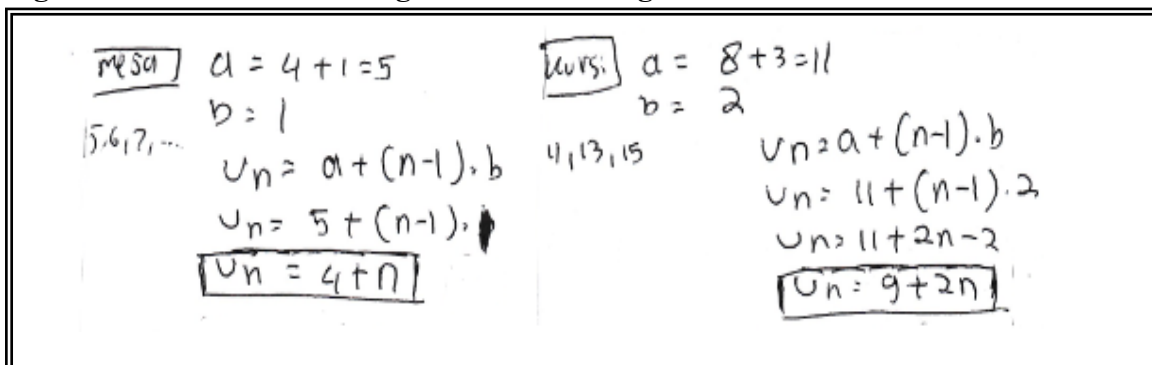 mesa a = 4 + 1 = 5
b = 1
5,6,7,...
Un = a + (n-1). b
Un = 5 + (n-1).
Un = 4 + n
kursi a = 8 + 3 = 11
b = 2
11, 13, 15
Un = a + (n-1). b
Un = 11 + (n-1). 2
Un = 11 + 2n - 2
Un = 9 + 2n